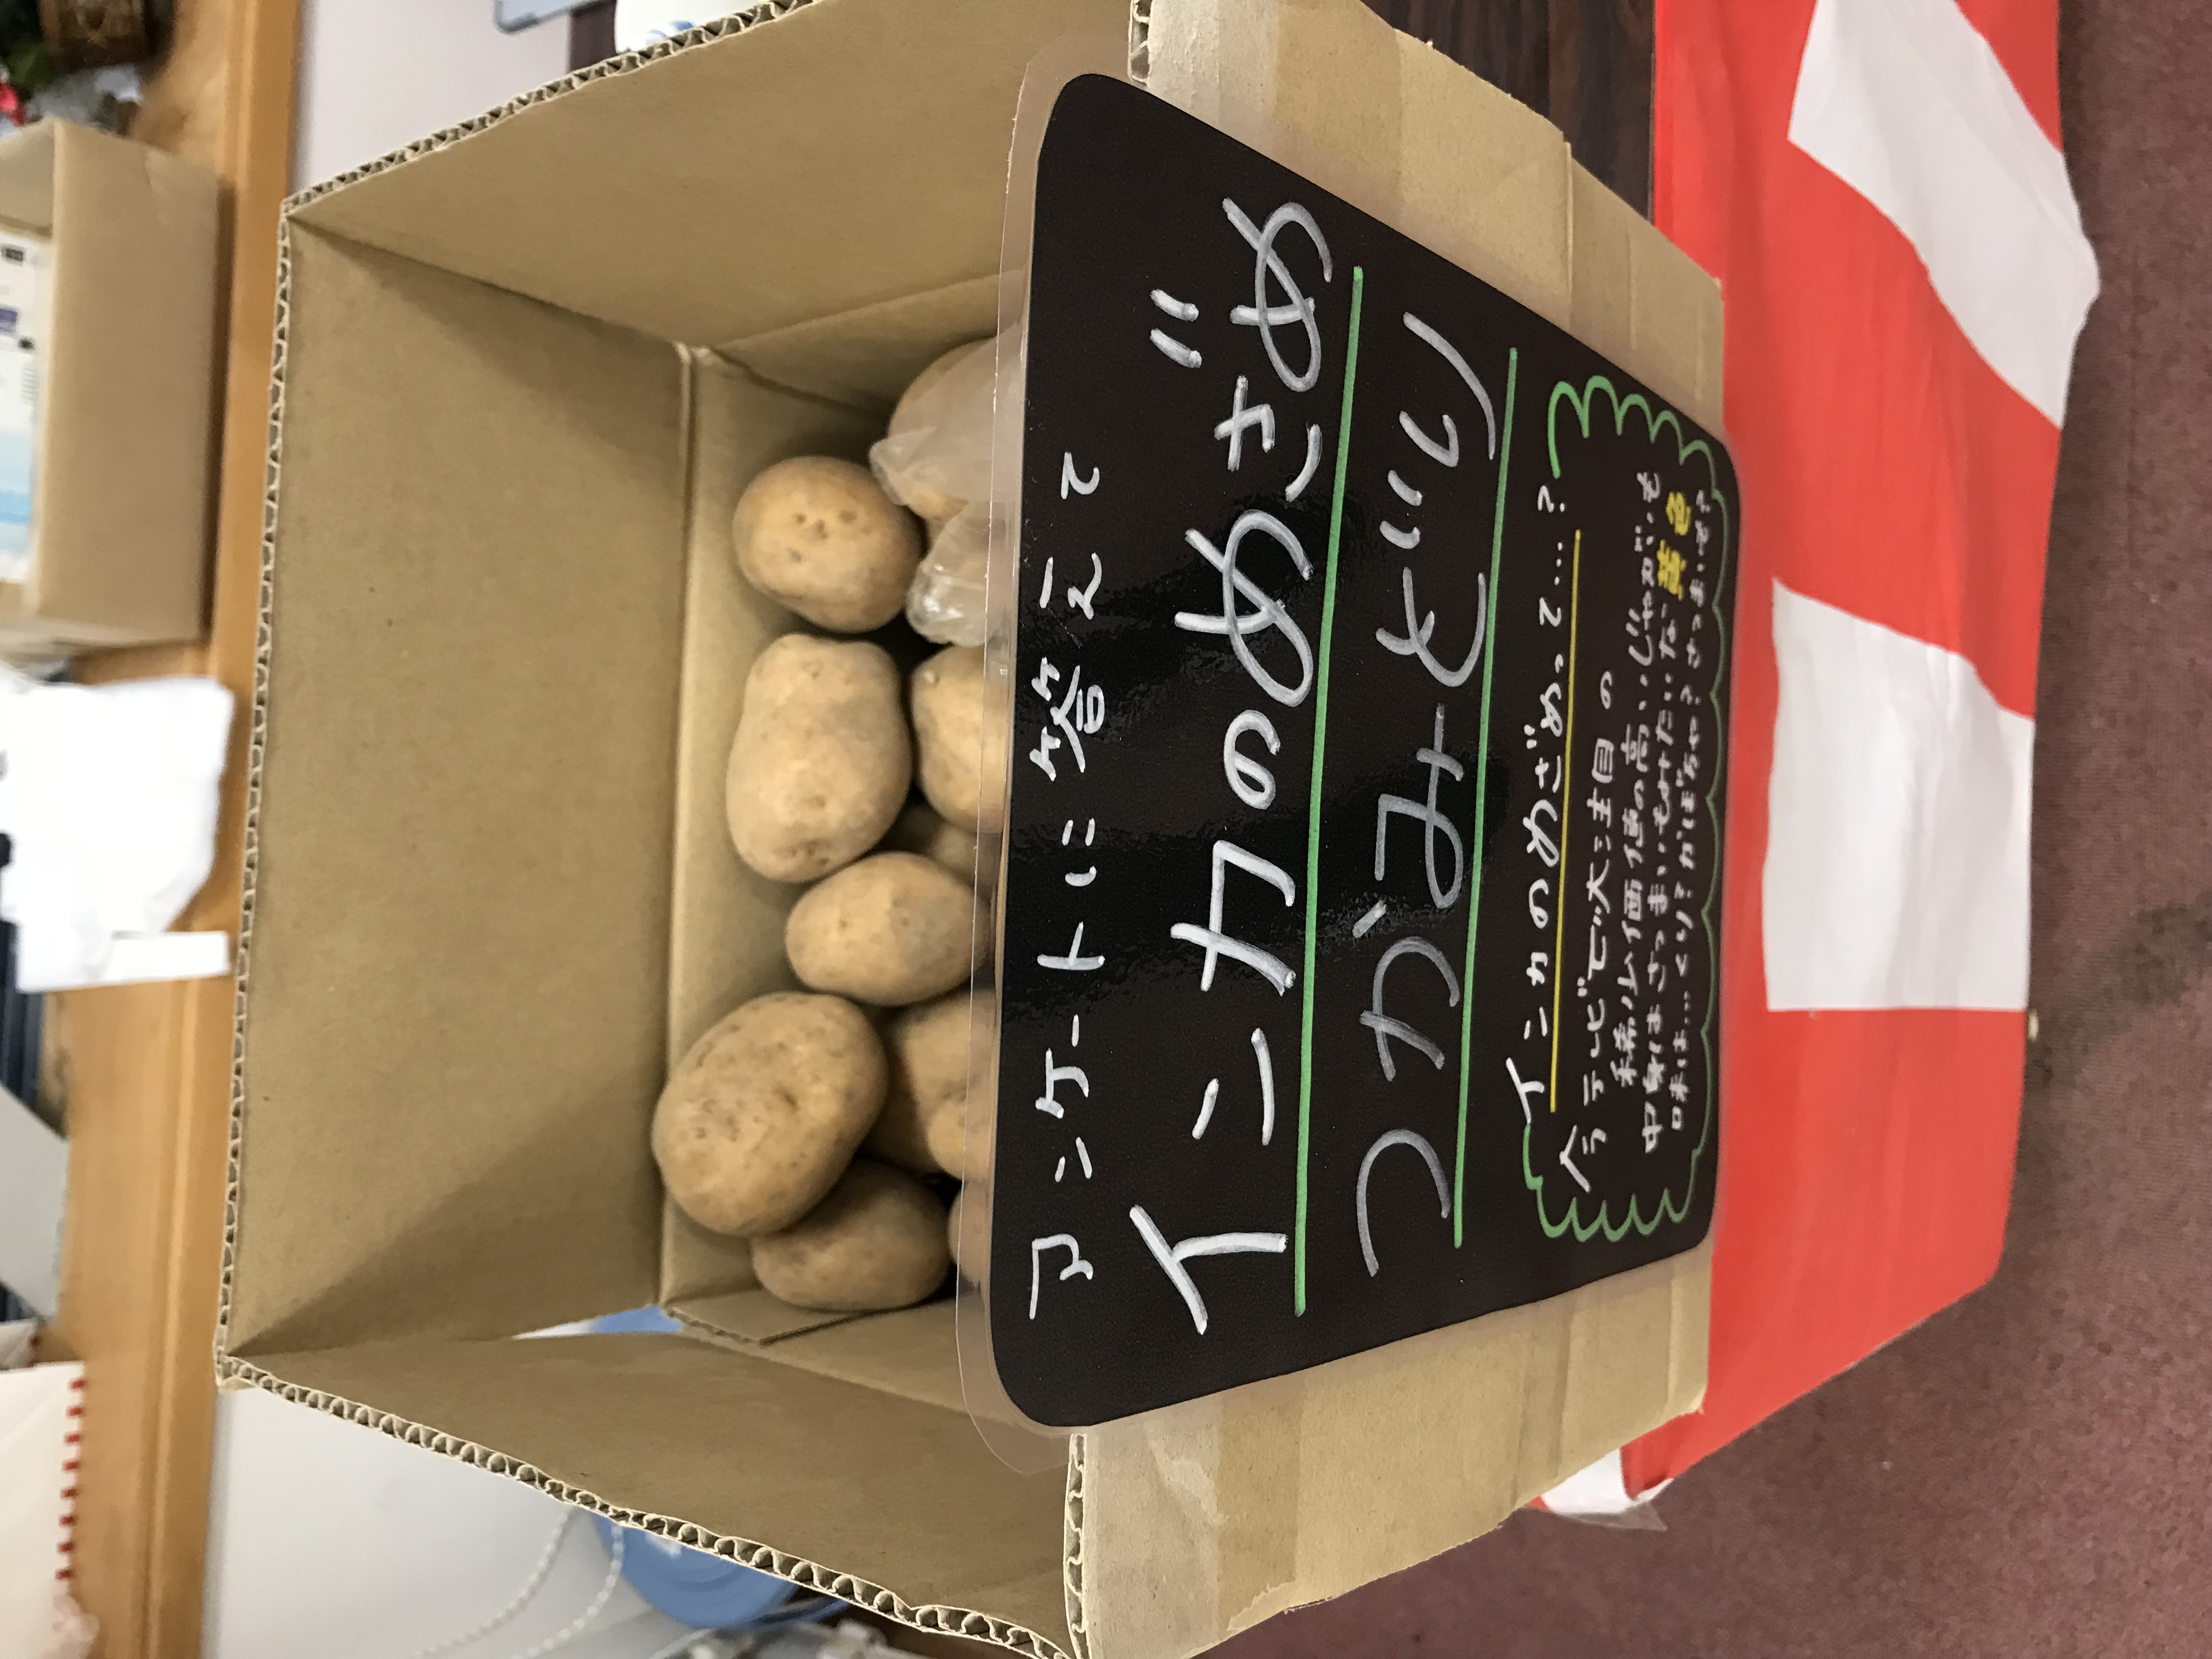 アンケートに答えて
インカのめざめ
つかみどり
インカのめざめって…?
今テレビで大注目の
稀少価値の高いじゃがいも
中身はさつまいもみたいな黄色
口末は…くり?かぼちゃ?さつまいも?